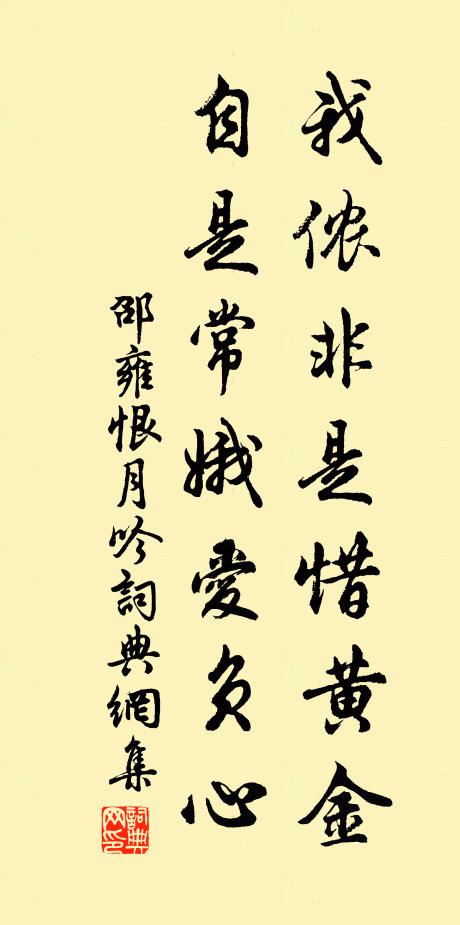 我侬非是惜黄金
自是常娥愛负心
邵雍恨月吟詞典網集
詞典网印